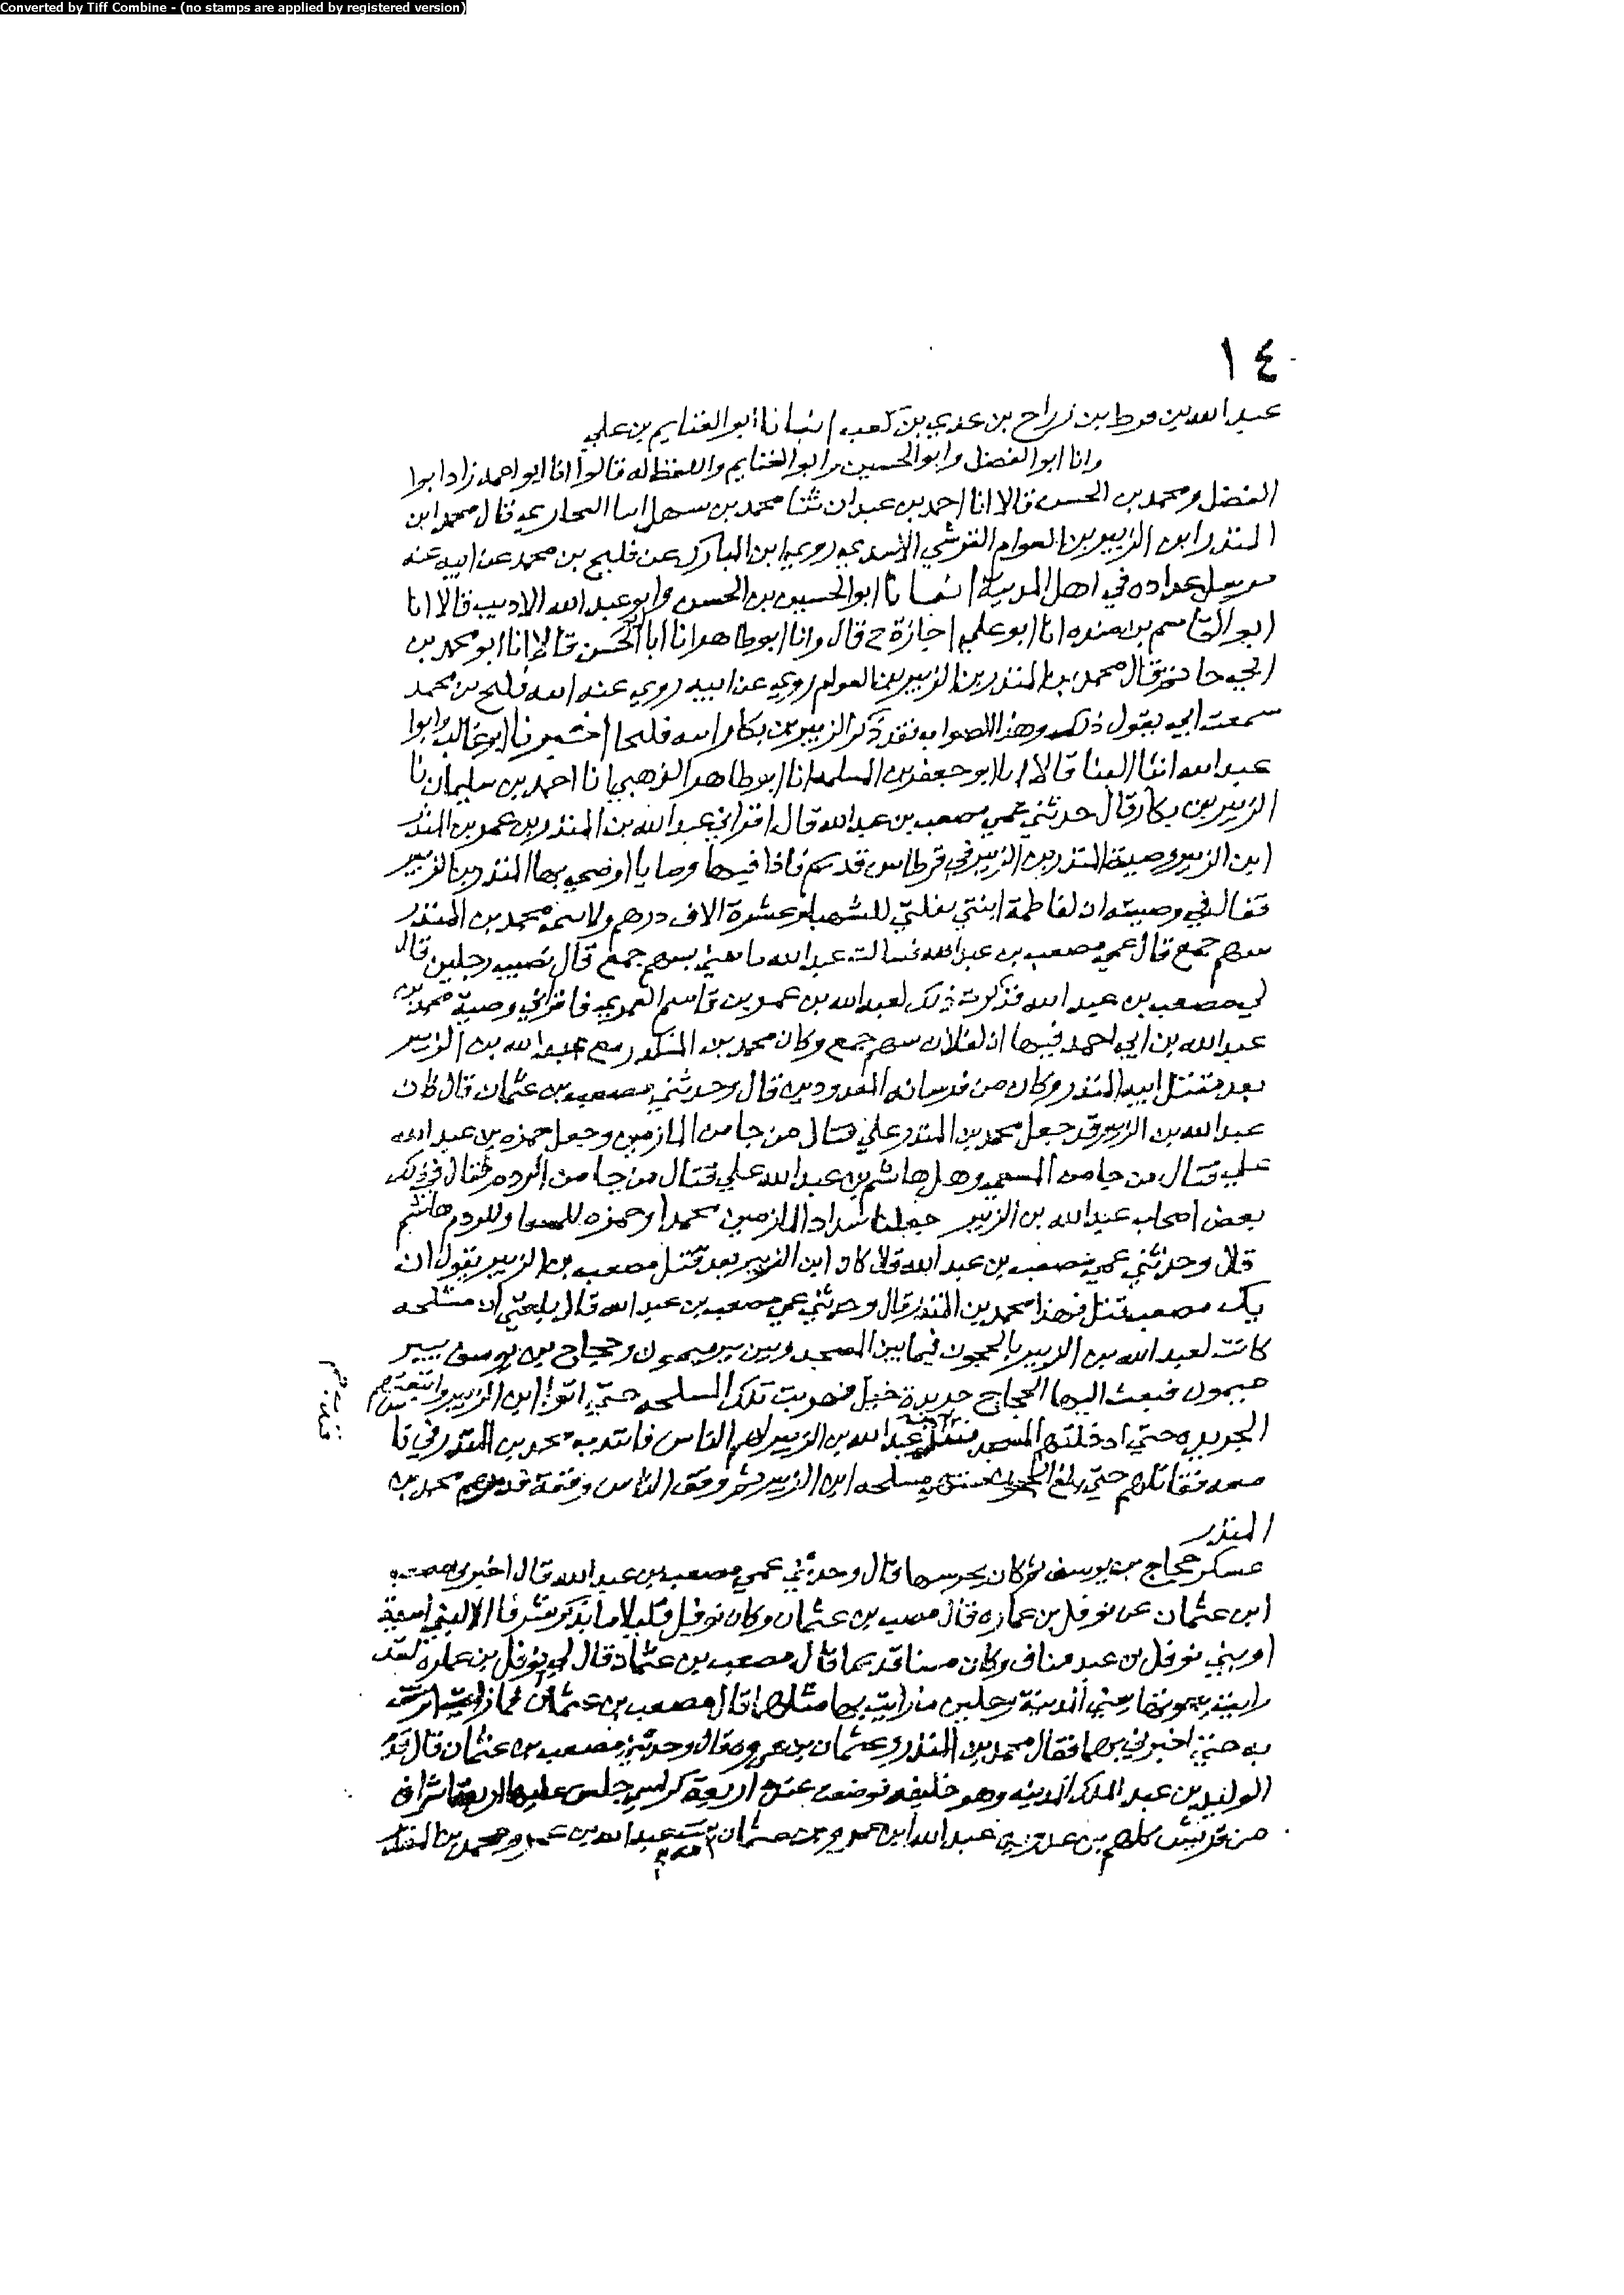 Converted by Tiff Combine - (no stamps are applied by registered version)
١٤
عبد الله بن قرط بن رزاح بن عدي بن كعب انبانا ابو الغنايم بن علي
وانا ابو الفضل وابو الحسين وابو الغنايم واللفظ له قالوا انا ابو احمد زاد ابوا
الفضل ومحمد بن الحسن قالا انا احمد بن عبدان ثنا محمد بن سهل انا البخاري قال محمد ابن
المنذر ابن الزبير بن العوام القرشي الاسدي روى ابن المبارك عن فليح بن محمد عن ابيه عنه
مرسل عداده في اهل المدينة انبانا ابو الحسين بن الحسن وابو عبد الله الاديب قالا انا
ابو القاسم بن منده انا ابو علي اجازة ح قال وانا ابو طاهر انا ابا الحسن قالا انا ابو محمد بن
ابي حاتم قال محمد بن المنذر بن الزبير بن العوام روى عن ابيه روى عنه ابنه فليح بن محمد
سمعت ابي يقول ذلك وهذا الصواب فقد ذكر الزبير بن بكار ابنه فليحا اخبرنا ابو غالب وابوا
عبد الله ابنا البنا قالا انا ابو جعفر بن المسلمه انا ابو طاهر الذهبي انا احمد بن سليمان نا
الزبير بن بكار قال حدثني عمي مصعب بن عبد الله قال اقراني عبد الله بن المنذر بن عمر بن المنذر
ابن الزبير وصية المنذر بن الزبير في قرطاس قديم فاذا فيها وصايا اوصى بها المنذر بن الزبير
فقال في وصيته ان لفاطمة ابنتي بغلتي الشهبا وعشرة الاف درهم ولابنه محمد بن المنذر
سهم جمع قال عمي مصعب بن عبد الله فسالت عبد الله ما معنى بسهم جمع قال نصيب رجلين قال
لي مصعب بن عبد الله فذكرت ذلك لعبد الله بن عمر بن قاسم العمري فاقراني وصية محمد بن
عبد الله بن ابي احمد فيها ان لفلان سهم جمع وكان محمد بن المنذر مع عبد الله بن الزبير
بعد مقتل ابيه المنذر وكان من فرسانه المعدودين قال وحدثني مصعب بن عثمان قال كان
عبد الله بن الزبير قد جعل محمد بن المنذر على قتال من جا من المازمين وجعل حمزه بن عبد الله
على قتال من جا من المسعى وجعل هاشم بن عبد الله على قتال من جا من الردم فقال في ذلك
بعض اصحاب عبد الله بن الزبير جعلنا سداد المازمين محمدا وحمزه للمسعا وللردم هاشم
قال وحدثني عمي مصعب بن عبد الله قال كان ابن الزبير بعد قتل مصعب بن الزبير يقول ان
يك مصعب قتل فهذا محمد بن المنذر قال وحدثني عمي مصعب بن عبد الله قال بلغني ان مسلحه
كانت لعبد الله بن الزبير بالحجون فيما بين المسجد وبين بير ميمون وحجاج بن يوسف ببير
ميمون فبعث اليها الحجاج جريدة خيل فهربت تلك المسلحه حتى اتوا ابن الزبير واتبعتهم
الجريده حتى ادخلتهم المسجد عبد الله بن الزبير الناس فانتدب محمد بن المنذر في نا
معه فقاتلهم حتى بلغ الحجون مسلحه ابن الزبير ثم وقف الناس وقفة محمد بن
المنذر
عسكر حجاج بن يوسف ثم كان يحرسها قال وحدثني عمي مصعب بن عبد الله قال اخبرني مصعب
ابن عثمان عن نوفل بن عماره قال مصعب بن عثمان وكان نوفل قليلا ما يذكر شرفا الا لبني امية
او بني نوفل بن عبد مناف وكان مسنا قديما قال مصعب بن عثمان قال لي نوفل بن عماره لقد
رايت يعني المدينة رجلين ما رايت بها مثلهما قال مصعب بن عثمان فما زلت
به حتى اخبرني بهما فقال محمد بن المنذر وعثمان بن عروه قال وحدثني مصعب بن عثمان قال قدم
الوليد بن عبد الملك المدينه وهو خليفه فوضعت عنده اربعة كراسي جلس عليها اربعة اشراف
من قريش كلهم بن عدويه عبد الله ابن عمرو بن عثمان عبد الله بن عمر ومحمد بن المنذر